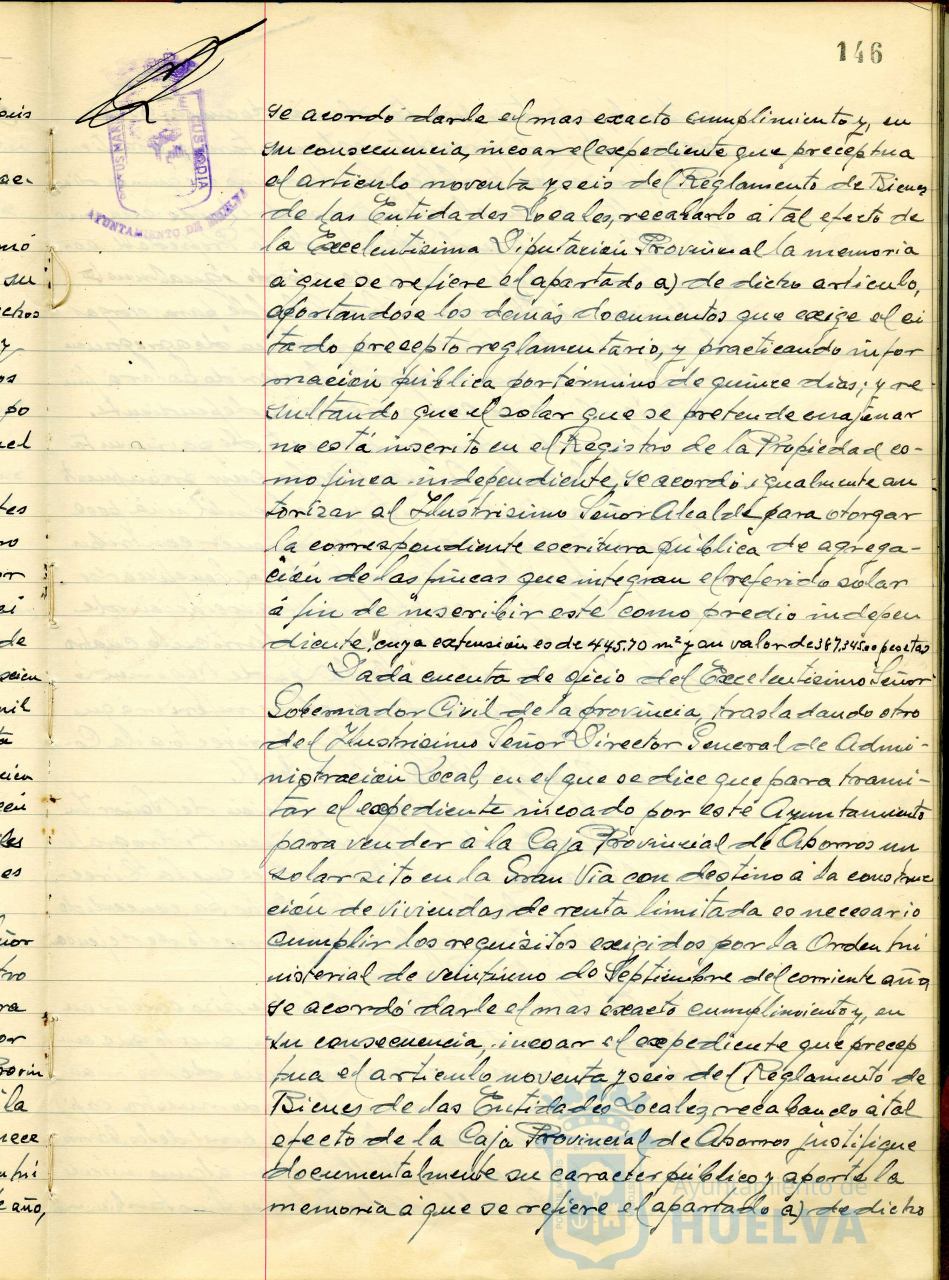 146
se acordó darle el mas exacto cumplimiento y, en
su consecuencia, incoar el expediente que preceptua
el articulo noventa y seis del Reglamento de Bienes
de las Entidades Locales, recabarlo á tal efecto de
la Excelentisima Diputación Provincial la memoria
á que se refiere el apartado a) de dicho articulo,
aportandose los demás documentos que exige el ci
tado precepto reglamentario, y practicando infor
mación pública por término de quince dias; y re-
sultando que el solar que se pretende enajenar
no está inscrito en el Registro de la Propiedad co-
mo finca independiente, se acordó igualmente au
torizar al Ilustrisimo Señor Alcalde para otorgar
la correspondiente escritura pública de agrega-
ción de las fincas que integran el referido solar
á fin de inscribir este como predio indepen
diente, cuya extensión es de 445,70 m² y su valor de 387.345,00 pesetas
Dada cuenta de oficio del Excelentisimo Señor
Gobernador Civil de la provincia, trasladando otro
del Ilustrisimo Señor Director General de Admi-
nistración Local, en el que se dice que para trami-
tar el expediente incoado por este Ayuntamiento
para vender á la Caja Provincial de Ahorros un
solar sito en la Gran Via con destino á la construc
ción de viviendas de renta limitada es necesario
cumplir los requisitos exigidos por la Orden mi
nisterial de veintiuno de Septiembre del corriente año,
se acordó darle el mas exacto cumplimiento y, en
su consecuencia, incoar el expediente que precep
tua el articulo noventa y seis del Reglamento de
Bienes de las Entidades Locales, recabando á tal
efecto de la Caja Provincial de Ahorros justifique
documentalmente su caracter público y aporte la
memoria á que se refiere el apartado a) de dicho
AYUNTAMIENTO DE HUELVA
CUSTODIA
Ayuntamiento de
HUELVA